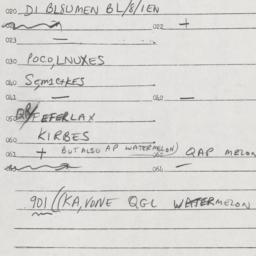 020 DI BLSUMEN BL/8/IEN
022 +
023 —
030 POCO, LNUXES
040
041 — 060 —
050 FEFERLAX
060 KIRBES
061 + BUT ALSO AP WATERMELON) QAP MELON
064 —
901 ((KA, VONE QGL WATERMELON